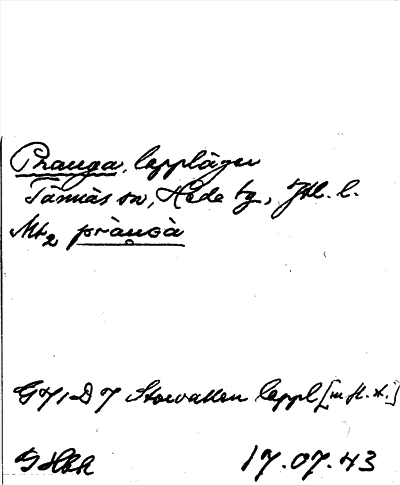 Pranga, lappläger
Tännäs sn, Hede tg, Jtl. l.
Mt2 pràŋgà
Storvallen lappl [m fl. k.]
17.07.43